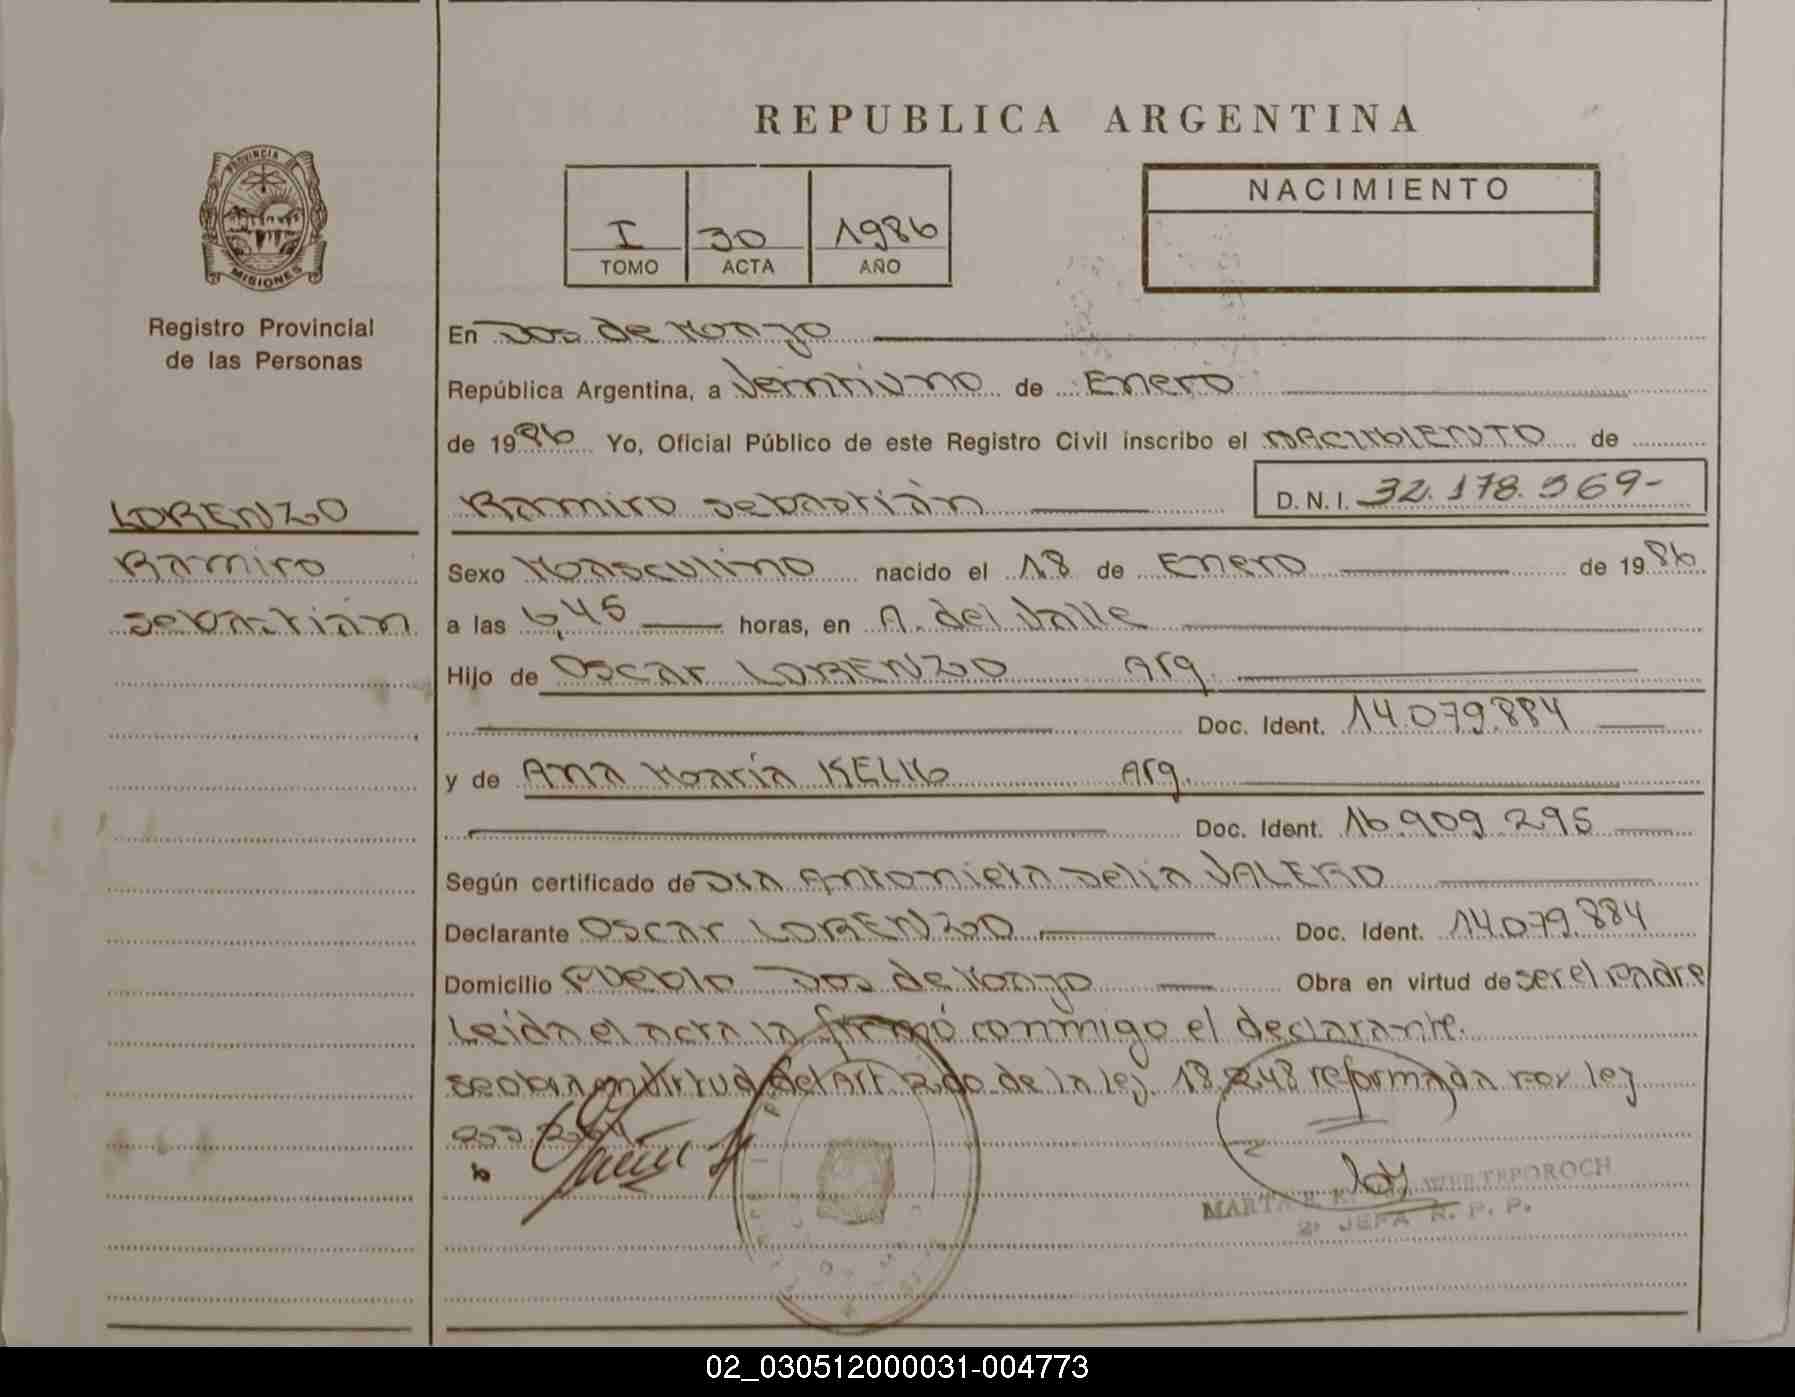 REPUBLICA ARGENTINA
PROVINCIA DE
MISIONES
Registro Provincial
de las Personas
I 30 1986
TOMO ACTA AÑO
NACIMIENTO
En Dos de Mayo
República Argentina, a Veintiuno de Enero
de 1986 Yo, Oficial Público de este Registro Civil inscribo el NACIMIENTO de
LORENZO
Ramiro Sebastián D.N.I. 32.178.969-
Ramiro
Sexo Masculino nacido el 18 de Enero de 1986
Sebastián
a las 6,45 horas, en A. del Valle
Hijo de Oscar LORENZO Arg.
Doc. Ident. 14.079.884
y de Ana María KELM Arg.
Doc. Ident. 16.909.295
Según certificado de Dra Antonieta Delia VALERIO
Declarante Oscar LORENZO Doc. Ident. 14.079.884
Domicilio Pueblo Dos de Mayo Obra en virtud de ser el Padre
Leida el acta la firmó conmigo el declarante.
se obra en virtud del Art 2do de la ley 18.248 reformada por ley
MARTA
2° JEFA R. P. P.
02_030512000031-004773